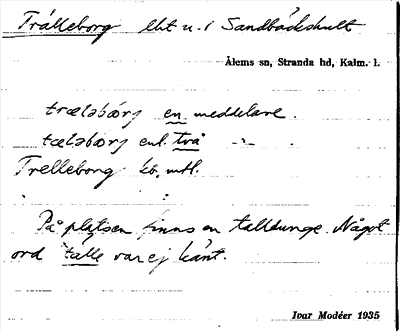 Trälleborg lht u. i Sandbäckshult
Ålems sn, Stranda hd, Kalm. l.
træləbårj en meddelare.
tæləbårj enl. två -"-
Trelleborg kb. mtl.
På platsen finns en talldunge. Något
ord tälle var ej känt.
Ivar Modéer 1935